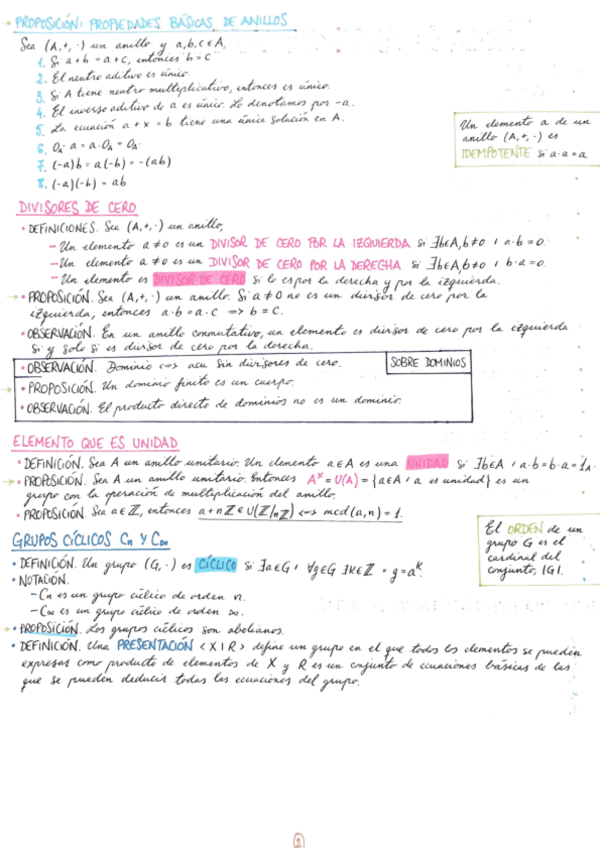 PROPOSICIÓN: PROPIEDADES BÁSICAS DE ANILLOS
Sea (A,+,·) un anillo y a,b,c∈A,
1. Si a+b = a+c, entonces b=c
2. El neutro aditivo es único.
3. Si A tiene neutro multiplicativo, entonces es único.
4. El inverso aditivo de a es único. Lo denotamos por -a.
5. La ecuación a+x = b tiene una única solución en A.
6. 0A·a = a·0A = 0A.
7. (-a)b = a(-b) = -(ab)
8. (-a)(-b) = ab
Un elemento a de un
anillo (A,+,·) es
IDEMPOTENTE si a·a = a
DIVISORES DE CERO
• DEFINICIONES. Sea (A,+,·) un anillo,
– Un elemento a≠0 es un DIVISOR DE CERO POR LA IZQUIERDA si ∃b∈A, b≠0 : a·b=0.
– Un elemento a≠0 es un DIVISOR DE CERO POR LA DERECHA si ∃b∈A, b≠0 : b·a=0.
– Un elemento es DIVISOR DE CERO si lo es por la derecha y por la izquierda.
• PROPOSICIÓN. Sea (A,+,·) un anillo. Si a≠0 no es un divisor de cero por la
izquierda, entonces a·b=a·c ⟹ b=c.
• OBSERVACIÓN. En un anillo conmutativo, un elemento es divisor de cero por la izquierda
si y solo si es divisor de cero por la derecha.
• OBSERVACIÓN. Dominio ⟺ acu sin divisores de cero.
SOBRE DOMINIOS
• PROPOSICIÓN. Un dominio finito es un cuerpo.
• OBSERVACIÓN. El producto directo de dominios no es un dominio.
ELEMENTO QUE ES UNIDAD
• DEFINICIÓN. Sea A un anillo unitario. Un elemento a∈A es una UNIDAD si ∃b∈A : a·b=b·a=1A.
• PROPOSICIÓN. Sea A un anillo unitario. Entonces A* = U(A) = {a∈A : a es unidad} es un
grupo con la operación de multiplicación del anillo.
• PROPOSICIÓN. Sea a∈ℤ, entonces a+nℤ∈U(ℤ/nℤ) ⟺ mcd(a,n)=1.
GRUPOS CÍCLICOS Cn Y C∞
• DEFINICIÓN. Un grupo (G,·) es CÍCLICO si ∃a∈G : ∀g∈G ∃k∈ℤ : g=a^k.
• NOTACIÓN.
– Cn es un grupo cíclico de orden n.
– C∞ es un grupo cíclico de orden ∞.
El ORDEN de un
grupo G es el
cardinal del
conjunto, |G|.
• PROPOSICIÓN. Los grupos cíclicos son abelianos.
• DEFINICIÓN. Una PRESENTACIÓN <X|R> define un grupo en el que todos los elementos se pueden
expresar como producto de elementos de X y R es un conjunto de ecuaciones básicas de las
que se pueden deducir todas las ecuaciones del grupo.
2